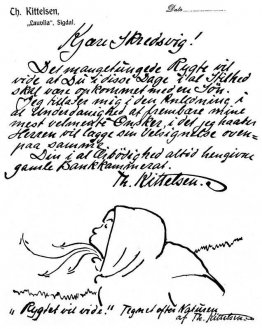 Th. Kittelsen,
"Lauvlia", Sigdal.
Dato
Kjære Skredsvig!
Det mangetungede Rygte vil
vide at Du i disse Dage i al Stilhed
skal være opkommet med en Søn.
Jeg tillater mig i den Anledning i
al Underdanighed at frembære mine
mest velmente Ønsker, i det jeg haaber
Herren vil lægge sin Velsignelse oven-
paa samme.
Din i al Ærbødighed altid hengivne
gamle Dankkammerat.
Th. Kittelsen.
"Rygtet vil vide." Tegnet efter Naturen
af Th. Kittelsen